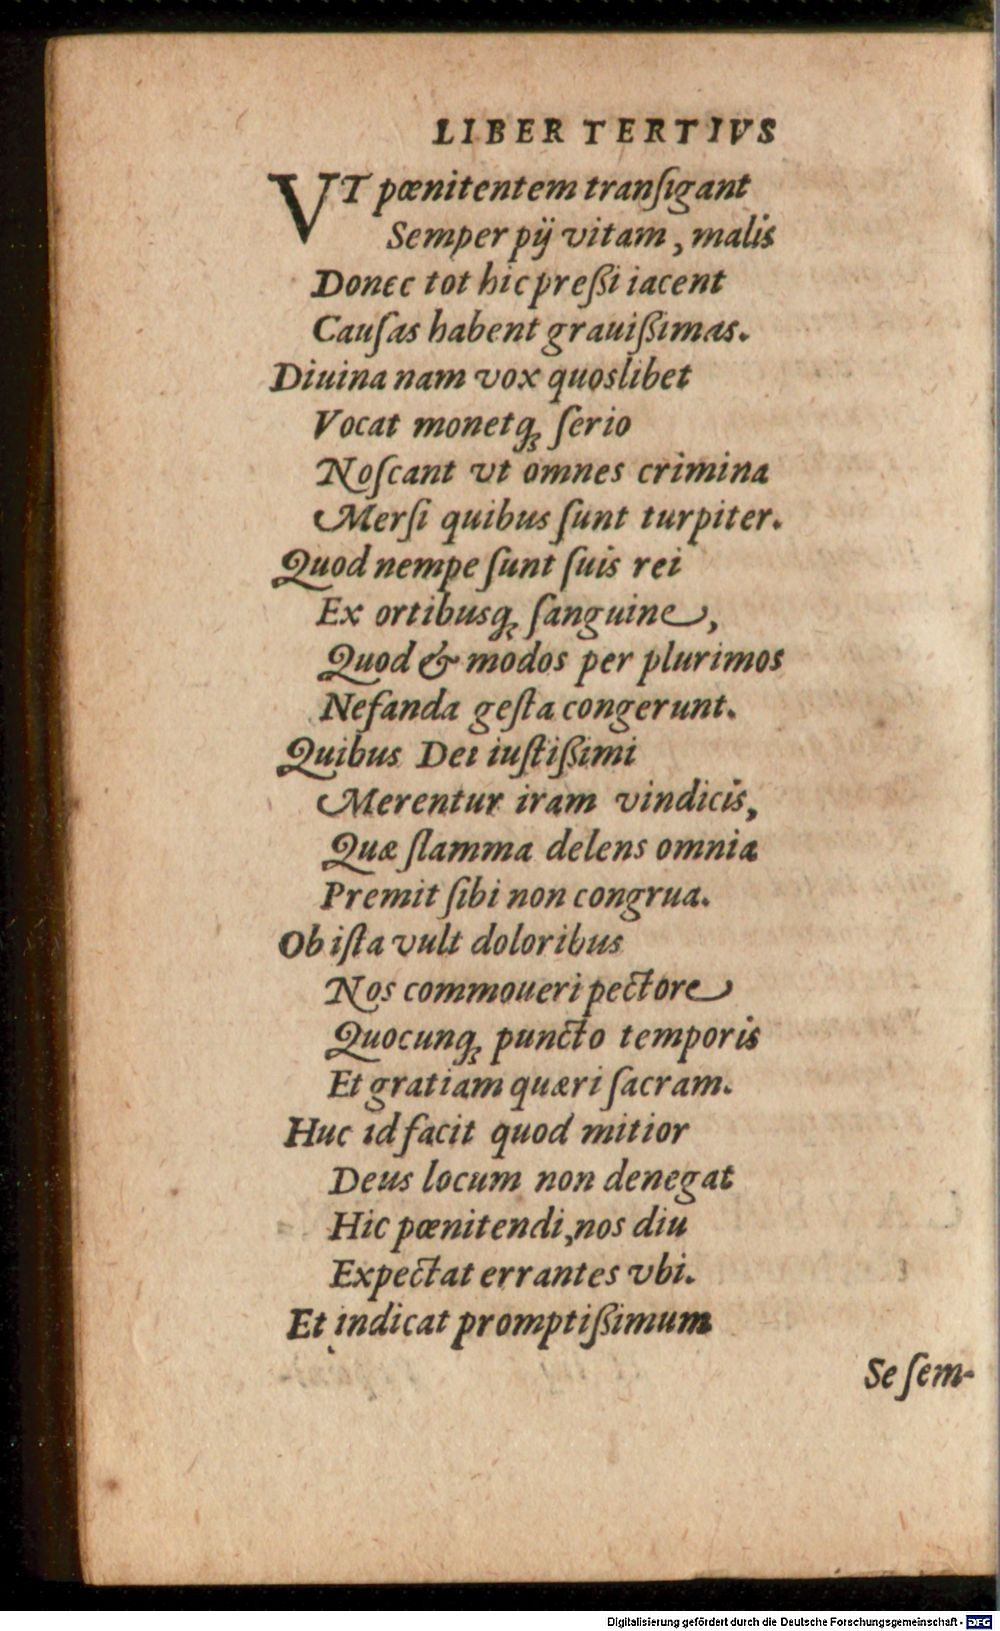 LIBER TERTIVS
VT pœnitentem tranſigant
Semper pij vitam, malis
Donec tot hic preßi iacent
Cauſas habent grauißimas.
Diuina nam vox quoslibet
Vocat monetꝗ; ſerio
Noſcant vt omnes crimina
Merſi quibus ſunt turpiter.
Quod nempe ſunt ſuis rei
Ex ortibusꝗ; ſanguine,
Quod & modos per plurimos
Nefanda geſta congerunt.
Quibus Dei iuſtißimi
Merentur iram vindicis,
Quæ flamma delens omnia
Premit ſibi non congrua.
Ob iſta vult doloribus
Nos commoueri pectore
Quocunꝗ; puncto temporis
Et gratiam quæri ſacram.
Huc id facit quod mitior
Deus locum non denegat
Hic pœnitendi, nos diu
Expectat errantes vbi.
Et indicat promptißimum
Se ſem-
Digitalisierung gefördert durch die Deutsche Forschungsgemeinschaft - DFG